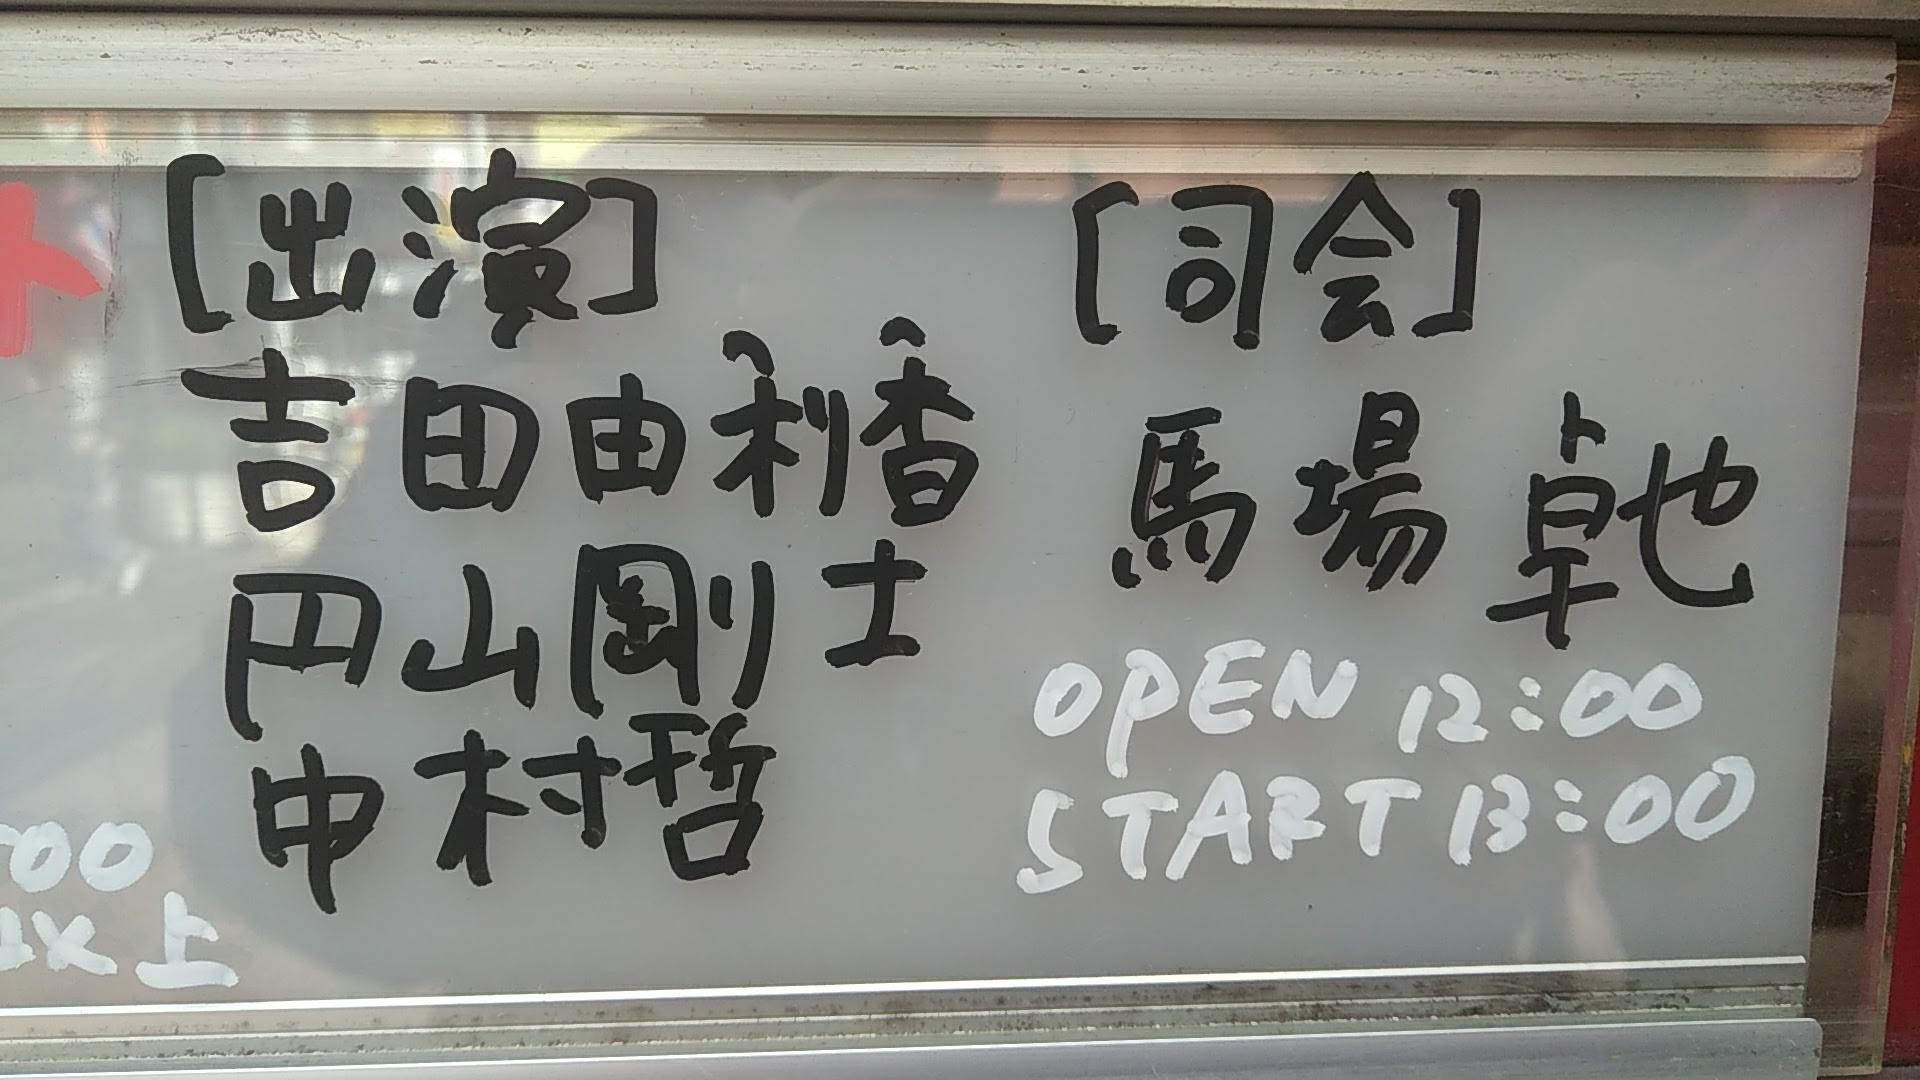 [出演]
吉田由利香
円山剛士
中村哲
[司会]
馬場卓也
OPEN 12:00
START 13:00
00
以上